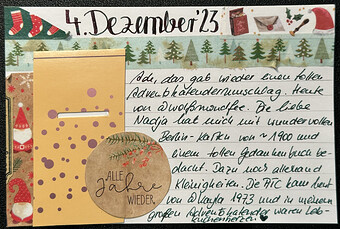 4. Dezember '23
Ach, das gab wieder einen tollen
Adventskalenderumschlag. Heute
von @wolfsmondfee. Die liebe
Nadja hat mich mit wundervollen
Berlin-Karten von ~1900 und
einem tollen Gedankenbuch be-
dacht. Dazu noch allerhand
Kleinigkeiten. Die ATC kam heut
von @layfa 1973 und in meinem
großen Adventskalender waren Leb-
kuchenherzen
ALLE
Jahre
WIEDER